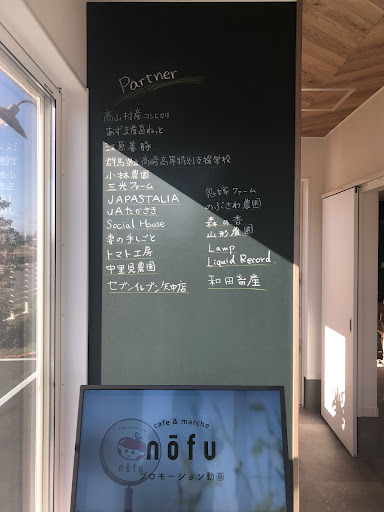 Partner
高山村産コシヒカリ
あずま産直ねっと
江原養豚
群馬県立高崎高等特別支援学校
小林農園
三光ファーム
JAPASTALIA
JAたかさき
Social House
春の手しごと
トマト工房
中里見農園
セブンイレブン矢中店
ファーム
のぶさわ農園
森の香
山形農園
Lamp
Liquid Record.
和田畜産
cafe & marche
nōfu
プロモーション動画
nōfu